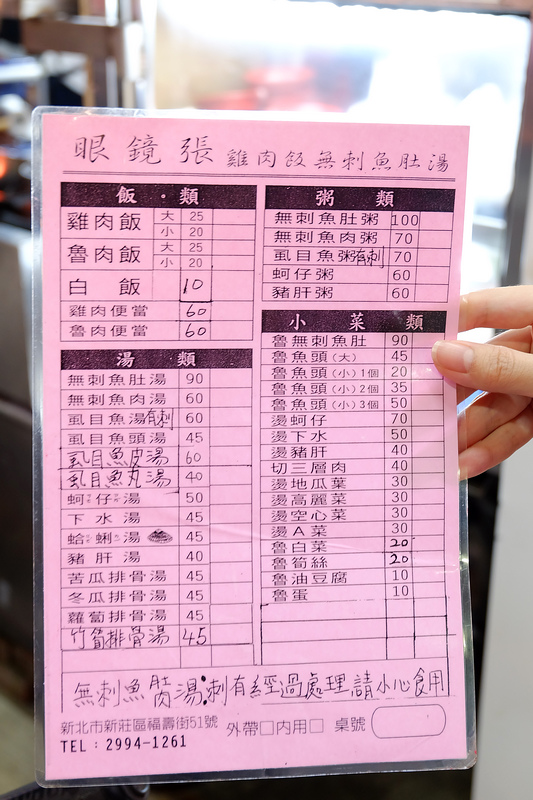 眼鏡張 雞肉飯無刺魚肚湯
飯・類
雞肉飯 大 25
小 20
魯肉飯 大 25
小 20
白飯 10
雞肉便當 60
魯肉便當 60
湯類
無刺魚肚湯 90
無刺魚肉湯 60
虱目魚湯有刺 60
虱目魚頭湯 45
虱目魚皮湯 60
虱目魚丸湯 40
蚵仔湯 50
下水湯 45
蛤蜊湯 45
豬肝湯 40
苦瓜排骨湯 45
冬瓜排骨湯 45
蘿蔔排骨湯 45
竹筍排骨湯 45
粥類
無刺魚肚粥 100
無刺魚肉粥 70
虱目魚粥有刺 70
蚵仔粥 60
豬肝粥 60
小菜類
魯無刺魚肚 90
魯魚頭(大) 45
魯魚頭(小)1個 20
魯魚頭(小)2個 35
魯魚頭(小)3個 50
燙蚵仔 70
燙下水 50
燙豬肝 40
切三層肉 40
燙地瓜葉 30
燙高麗菜 30
燙空心菜 30
燙A菜 30
魯白菜 20
魯筍絲 20
魯油豆腐 10
魯蛋 10
無刺魚肚肉湯:刺有經過處理請小心食用
新北市新莊區福壽街51號 外帶□内用□ 桌號
TEL:2994-1261